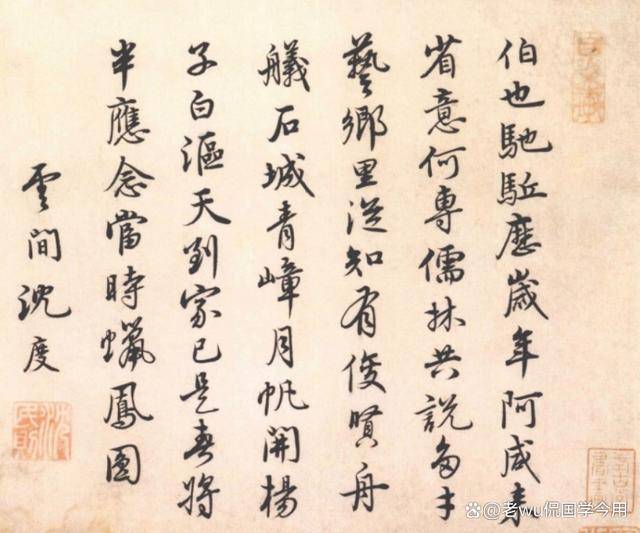 伯也馳駈歷歲年阿咸來
省意何專儒林共說多才
藝鄉里從知有俊賢舟
艤石城青嶂月帆開楊
子白漚天到家已是春將
半應念當時蠟鳳圓
雲間沈度
沈民則
@老wu侃国学今用